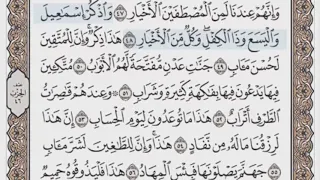 وَإِنَّهُمْ عِندَنَا لَمِنَ ٱلْمُصْطَفَيْنَ ٱلْأَخْيَارِ ٤٧ وَٱذْكُرْ إِسْمَٰعِيلَ
وَٱلْيَسَعَ وَذَا ٱلْكِفْلِ ۖ وَكُلٌّ مِّنَ ٱلْأَخْيَارِ ٤٨ هَٰذَا ذِكْرٌ ۚ وَإِنَّ لِلْمُتَّقِينَ
لَحُسْنَ مَـَٔابٍ ٤٩ جَنَّٰتِ عَدْنٍ مُّفَتَّحَةً لَّهُمُ ٱلْأَبْوَٰبُ ٥٠ مُتَّكِـِٔينَ
فِيهَا يَدْعُونَ فِيهَا بِفَٰكِهَةٍ كَثِيرَةٍ وَشَرَابٍ ٥١ وَعِندَهُمْ قَٰصِرَٰتُ
ٱلطَّرْفِ أَتْرَابٌ ٥٢ هَٰذَا مَا تُوعَدُونَ لِيَوْمِ ٱلْحِسَابِ ٥٣ إِنَّ هَٰذَا
لَرِزْقُنَا مَا لَهُۥ مِن نَّفَادٍ ٥٤ هَٰذَا ۚ وَإِنَّ لِلطَّٰغِينَ لَشَرَّ مَـَٔابٍ ٥٥
جَهَنَّمَ يَصْلَوْنَهَا فَبِئْسَ ٱلْمِهَادُ ٥٦ هَٰذَا فَلْيَذُوقُوهُ حَمِيمٌ